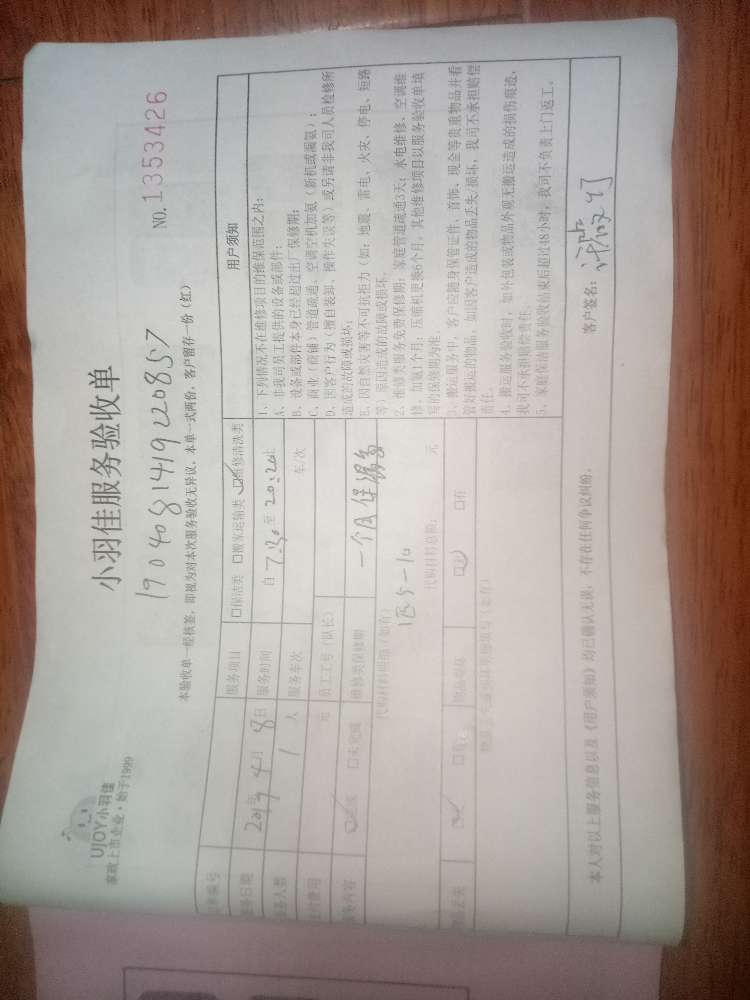 UJOY小羽佳
家政上市企业·始于1999
小羽佳服务验收单
NO.1353426
1904081419220857
本验收单一经核签,即视为对本次服务验收无异议。本单一式两份,客户留存一份(红)
服务项目 □保洁类 □搬家运输类 ☑维修清洗类
服务日期 2019年4月8日 服务时间 自7:30至20:20止
服务人数 1人 服务车次 车/次
元 员工工号(队长)
服务内容 ☑完成 □未完成 维修类保修期 一个月保漏氟
代购材料明细(如有)
185-10
代购材料总额: 元
物品丢失 物品损坏 □有
用户须知
1、下列情况不在维修项目的维保范围之内:
A、非我司员工提供的设备或部件;
B、设备或部件本身已经超过出厂保修期;
C、商业(商铺)管道疏通、空调空机加氨(新机或漏氨);
D、因客户行为(擅自装卸、操作失误等)或另请非我司人员检修所
造成的故障或损坏;
E、因自然灾害等不可抗拒力(如:地震、雷电、火灾、停电、短路
等)原因造成的故障或损坏。
2、维修类服务免费保修期:家庭管道疏通3天;水电维修、空调维
修、加氟1个月;压缩机更换6个月,其他维修项目以服务验收单填
写的保修期为准。
3、搬运服务中,客户应随身保管证件、首饰、现金等贵重物品并看
管好搬运的物品,如因客户造成的物品丢失/损坏,我司不承担赔偿
责任。
4、搬运服务验收时,如外包装或物品外观无搬运造成的损伤痕迹,
我司不承担赔偿责任。
5、家庭保洁服务验收结束后超过48小时,我司不负责上门返工。
本人对以上服务信息以及《用户须知》均已确认无误,不存在任何争议纠纷。
客户签名: